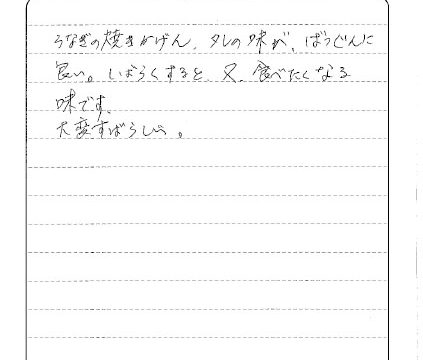 うなぎの焼きかげん、タレの味が、ばつぐんに
良い。しばらくすると、又、食べたくなる
味です。
大変すばらしい。